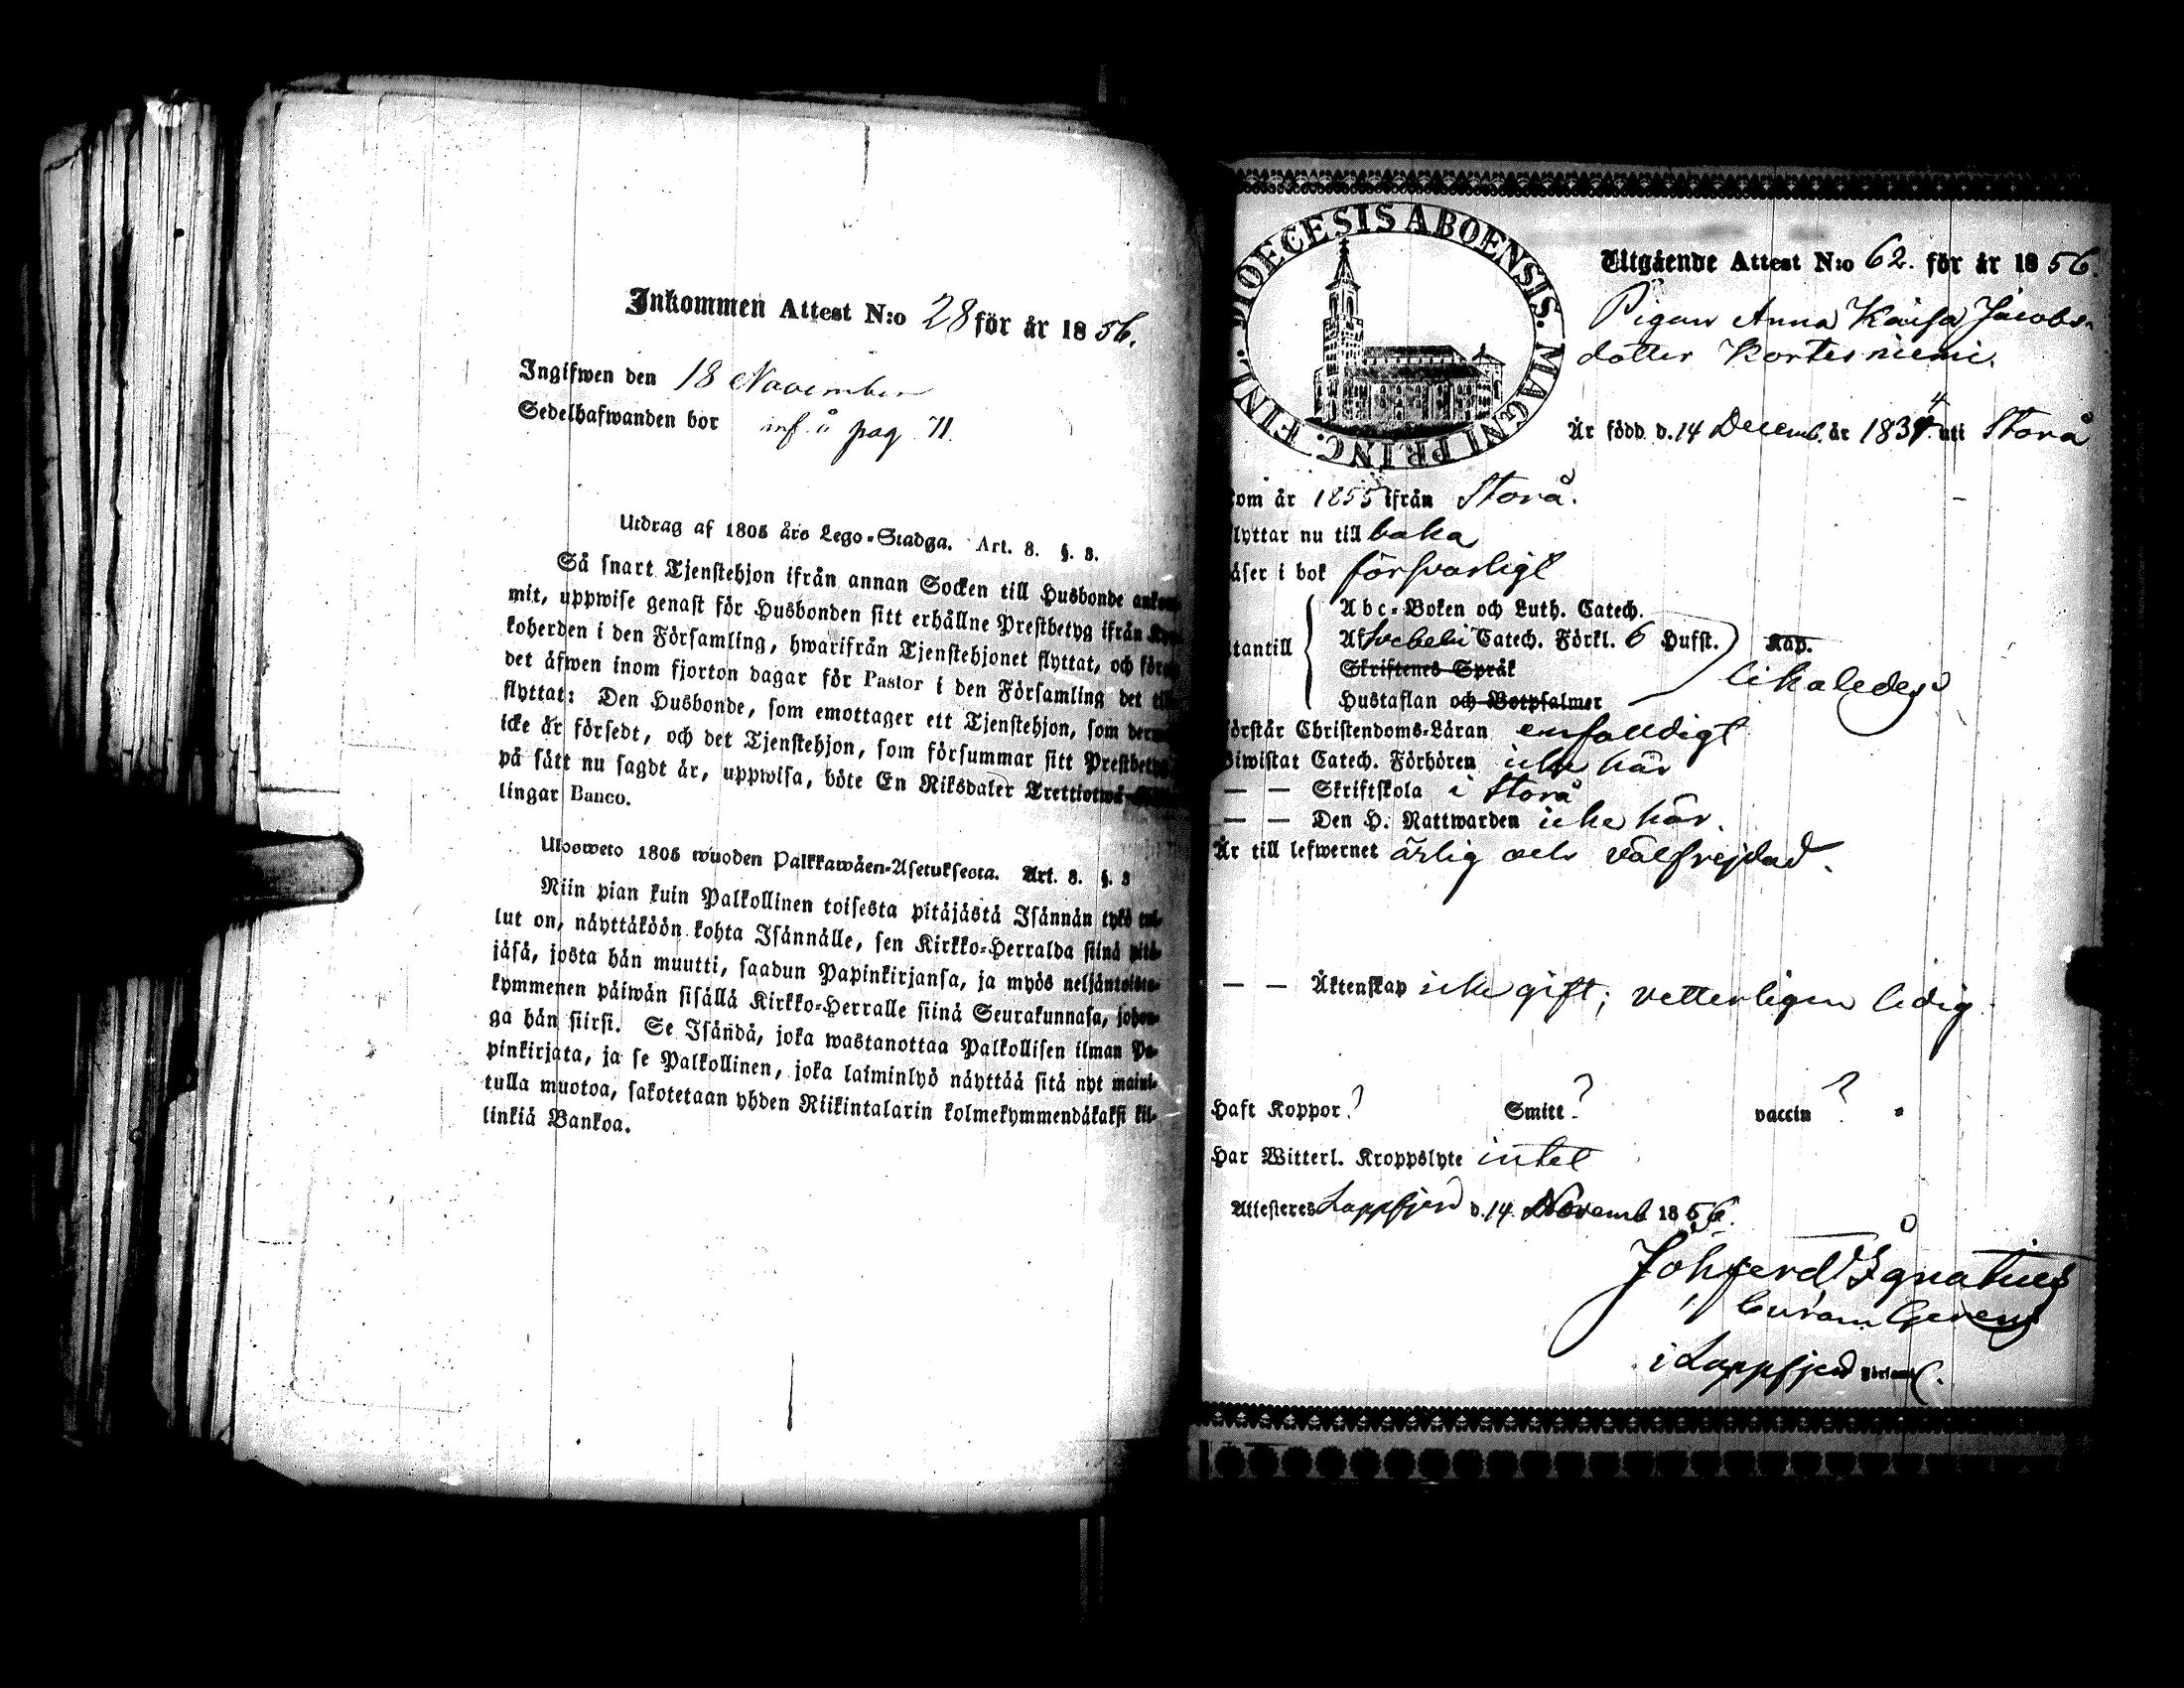 Inkommen Attest N:o 28 för år 1856.
Ingifwen den 18 November
Sedelhafwanden bor inf. å pag. 71.
Utdrag af 1805 års Lego-Stadga. Art. 8. §. 3.
Så snart Tjenstehjon ifrån annan Socken till Husbonde ankom-
mit, uppwise genast för Husbonden sitt erhållne Prestbetyg ifrån
koherden i den Församling, hwarifrån Tjenstehjonet flyttat, och
det äfwen inom fjorton dagar för Pastor i den Församling det
flyttat: Den Husbonde, som emottager ett Tjenstehjon, som
icke är försedt, och det Tjenstehjon, som försummar sitt Prestbetyg
på sätt nu sagdt är, uppwisa, böte En Riksdaler Trettiotwå
lingar Banco.
Ulosweto 1805 wuoden Palkkawäen-Asetuksesta. Art. 8. §. 3
Niin pian kuin Palkollinen toisesta pitäjästä Isännän tykö tul-
lut on, näyttäköön kohta Isännälle, sen Kirkko-Herralda siinä pitä-
jäsä, josta hän muutti, saadun Papinkirjansa, ja myös neljäntoista-
kymmenen päiwän sisällä Kirkko-Herralle siinä Seurakunnasa, johon-
ga hän siirsi. Se Isändä, joka wastanottaa Palkollisen ilman Pa-
pinkirjata, ja se Palkollinen, joka laiminlyö näyttää sitä nyt maini-
tulla muotoa, sakotetaan yhden Riikintalarin kolmekymmendäkaksi kil-
linkiä Bankoa.
DIOECESIS ABOENSIS. MAGNI PRINC. FINL.
Utgående Attest N:o 62. för år 1856.
Pigan Anna Kaisa Jacobs-
dotter Kortesniemi.
Är född d. 14 Decemb. år 1834 uti Storå
kom år 1855 ifrån Storå.
flyttar nu till baka
läser i bok försvarligt
utantill
Abc-Boken och Luth. Catech.
Af Svebelii Catech. Förkl. 6 Hufst. Kap.
Skriftenes Språk
Hustaflan och Botpsalmer
likaledes
Förstår Christendoms-Läran enfalldigt
Biwistat Catech. Förhören icke här
— — Skriftskola i Storå
— — Den H. Nattwarden icke här.
Är till lefwernet ärlig och välfrejdad.
— — Äktenskap icke gift; vetterligen ledig
Haft Koppor? Smitt? vaccin?
Har Witterl. Kroppslyte intet
Attesteres Lappfjerd d. 14. Novemb 1856.
Joh. Ferd. Ignatius
Curam Gerens
i Lappfjerd